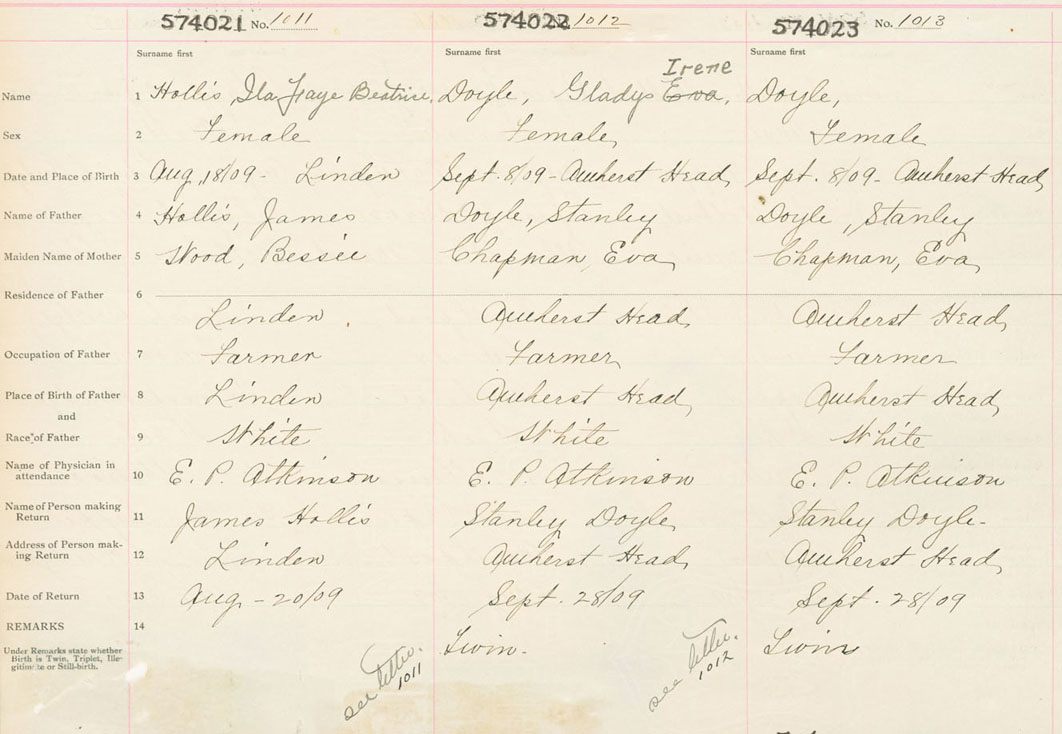 574021 No. 1011 574022 1012 574023 No. 1013
Surname first Surname first Surname first
Irene
Name 1 Hollis, Ila Fraye Beatrice. Doyle, Gladys Eva. Doyle,
Sex 2 Female Female Female
Date and Place of Birth 3 Aug, 18/09 - Linden Sept. 8/09 - Amherst Head Sept. 8/09 - Amherst Head
Name of Father 4 Hollis, James Doyle, Stanley Doyle, Stanley
Maiden Name of Mother 5 Wood, Bessie Chapman, Eva Chapman, Eva
Residence of Father 6
Linden Amherst Head Amherst Head
Occupation of Father 7 Farmer Farmer Farmer
Place of Birth of Father 8 Linden Amherst Head Amherst Head
and
Race of Father 9 White White White
Name of Physician in
attendance 10 E. P. Atkinson E. P. Atkinson E. P. Atkinson
Name of Person making
Return 11 James Hollis Stanley Doyle Stanley Doyle -
Address of Person mak-
ing Return 12 Linden Amherst Head Amherst Head
Date of Return 13 Aug - 20/09 Sept. 28/09 Sept. 28/09
REMARKS 14
Twin - Twin
Under Remarks state whether
Birth is Twin, Triplet, Ille-
gitimate or Still-birth.
see letter. see letter.
1011 1012